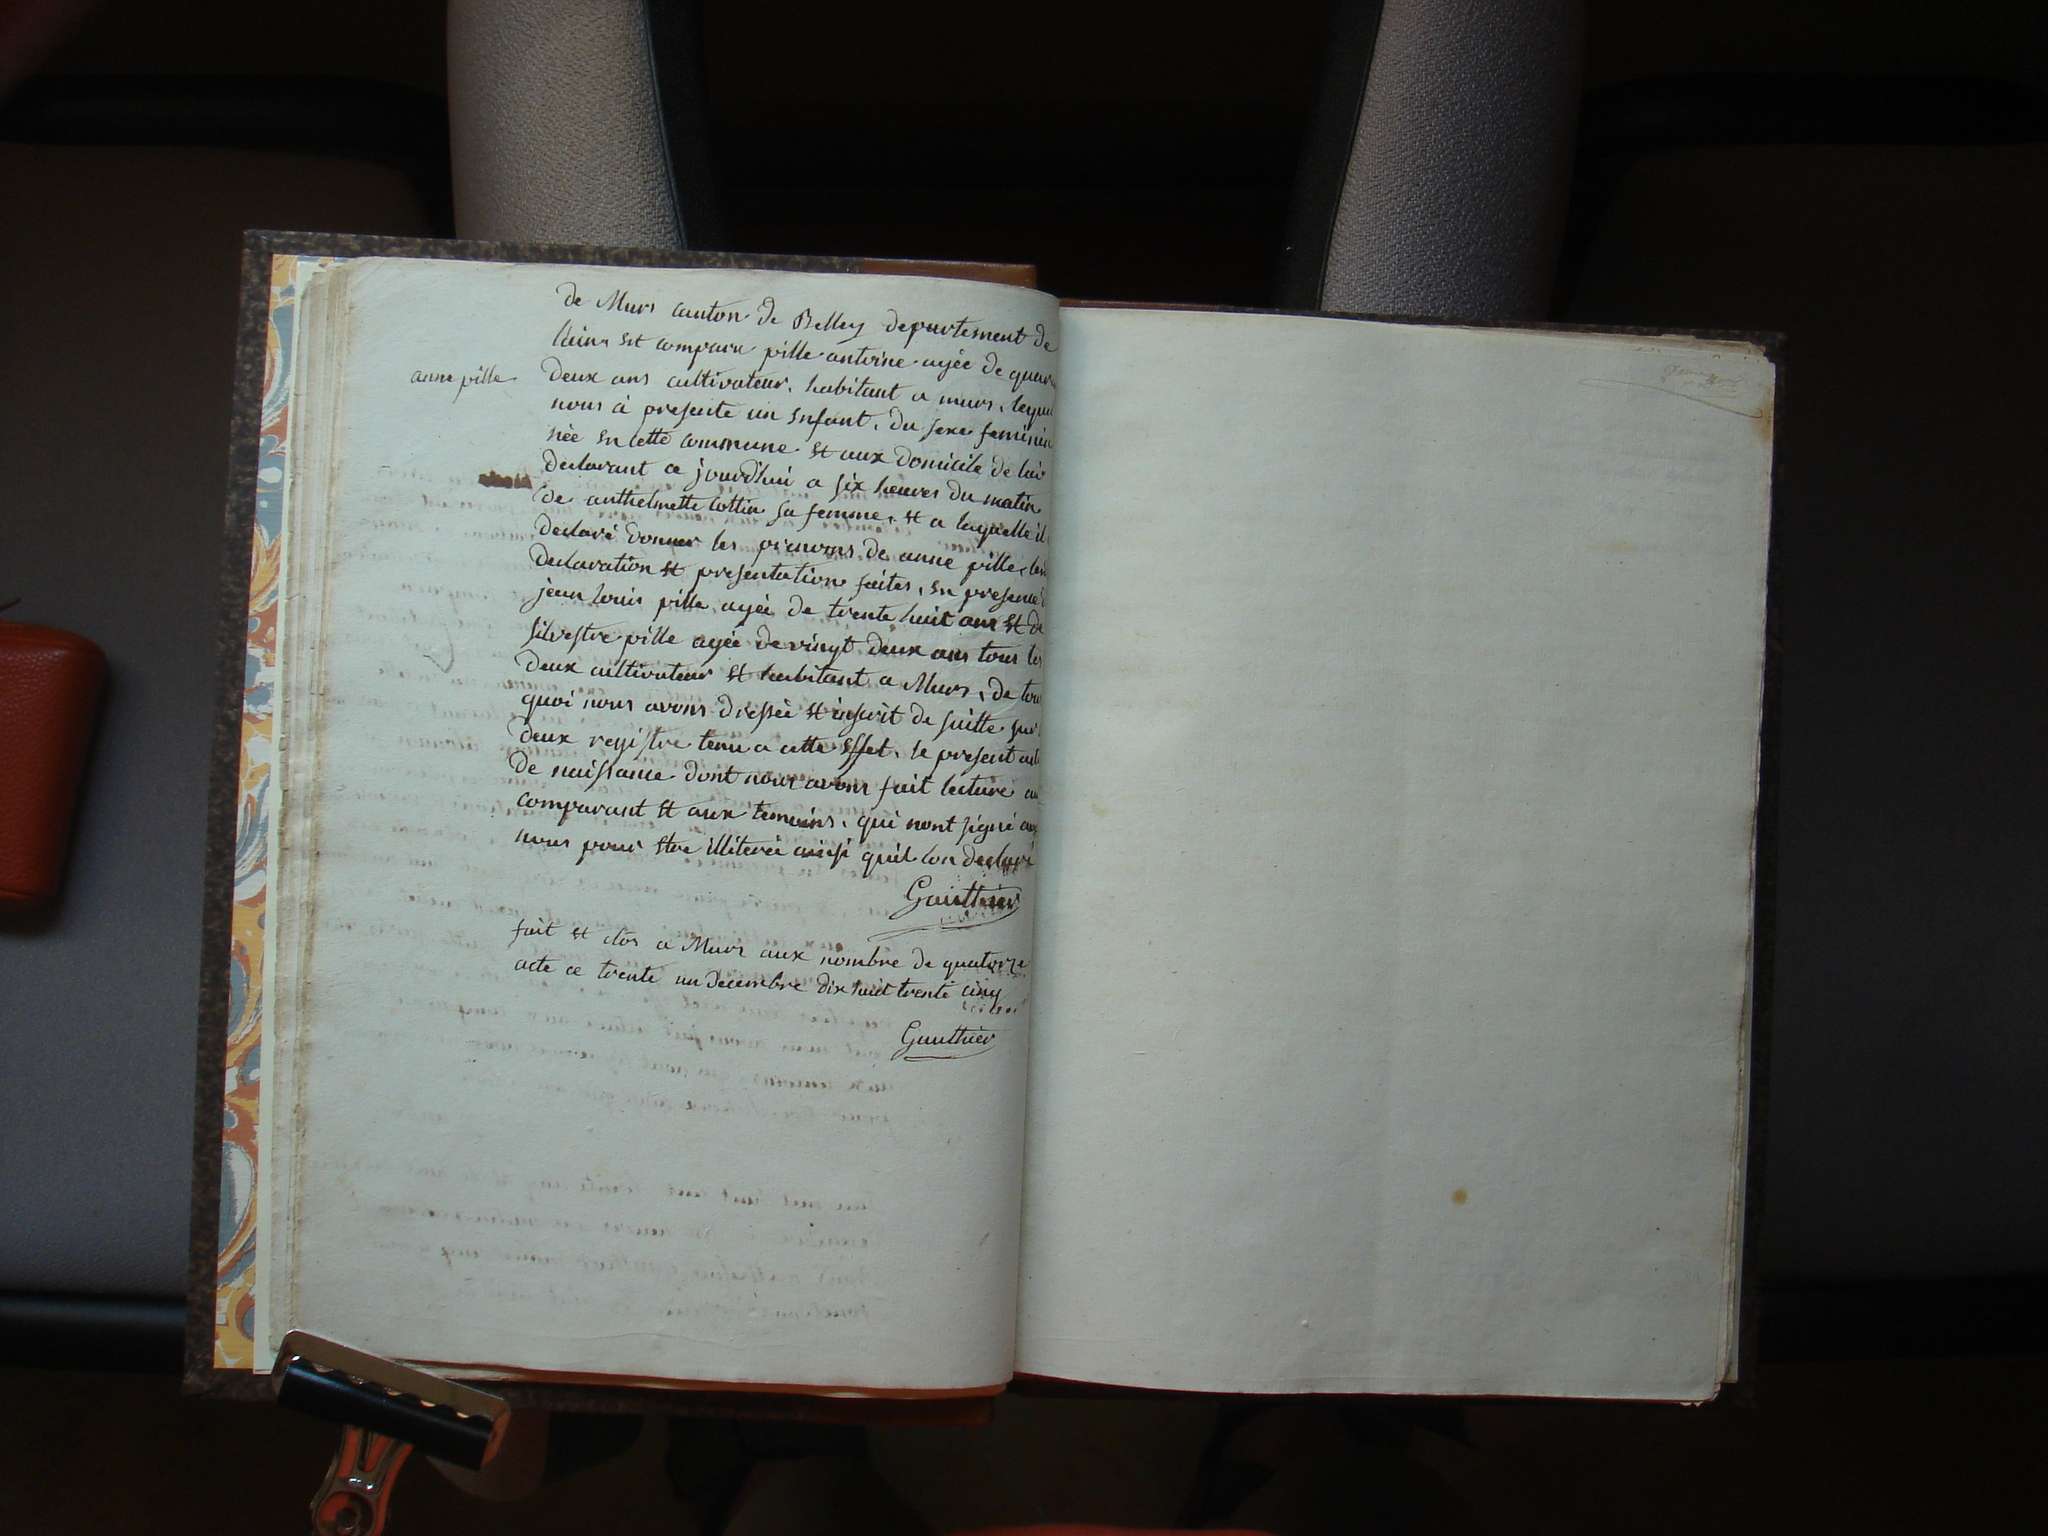 de Murs canton de Belley departement de
lain, est comparu pille antoine agée de quaran
anne pille
deux ans cultivateur, habitant a murs, lequel
nous à presenté un enfant, du sexe feminin
née en cette commune et aux domicile de lui
declarant ce jourd'hui a six heures du matin
de anthelmette cottin sa femme, et a laquelle il
declaré donner les prenoms de anne pille, les
declaration et presentation faites, en presence d
jean louis pille agée de trente huit ans et de
silvestre pille agée de vingt deux ans tous les
deux cultivateur et habitant a Murs, de tou
quoi nous avons dressée et inscrit de suitte sur
deux registre tenu a cette effet, le present acte
de naissance dont nous avons fait lecture au
comparant et aux temoins, qui nont signé avec
nous pour etre illiterée ainsi quil lon declaré
Gauthier
fait et clos a Murs aux nombre de quatorze
acte ce trente un Decembre dix huit trente cinq
Gauthier